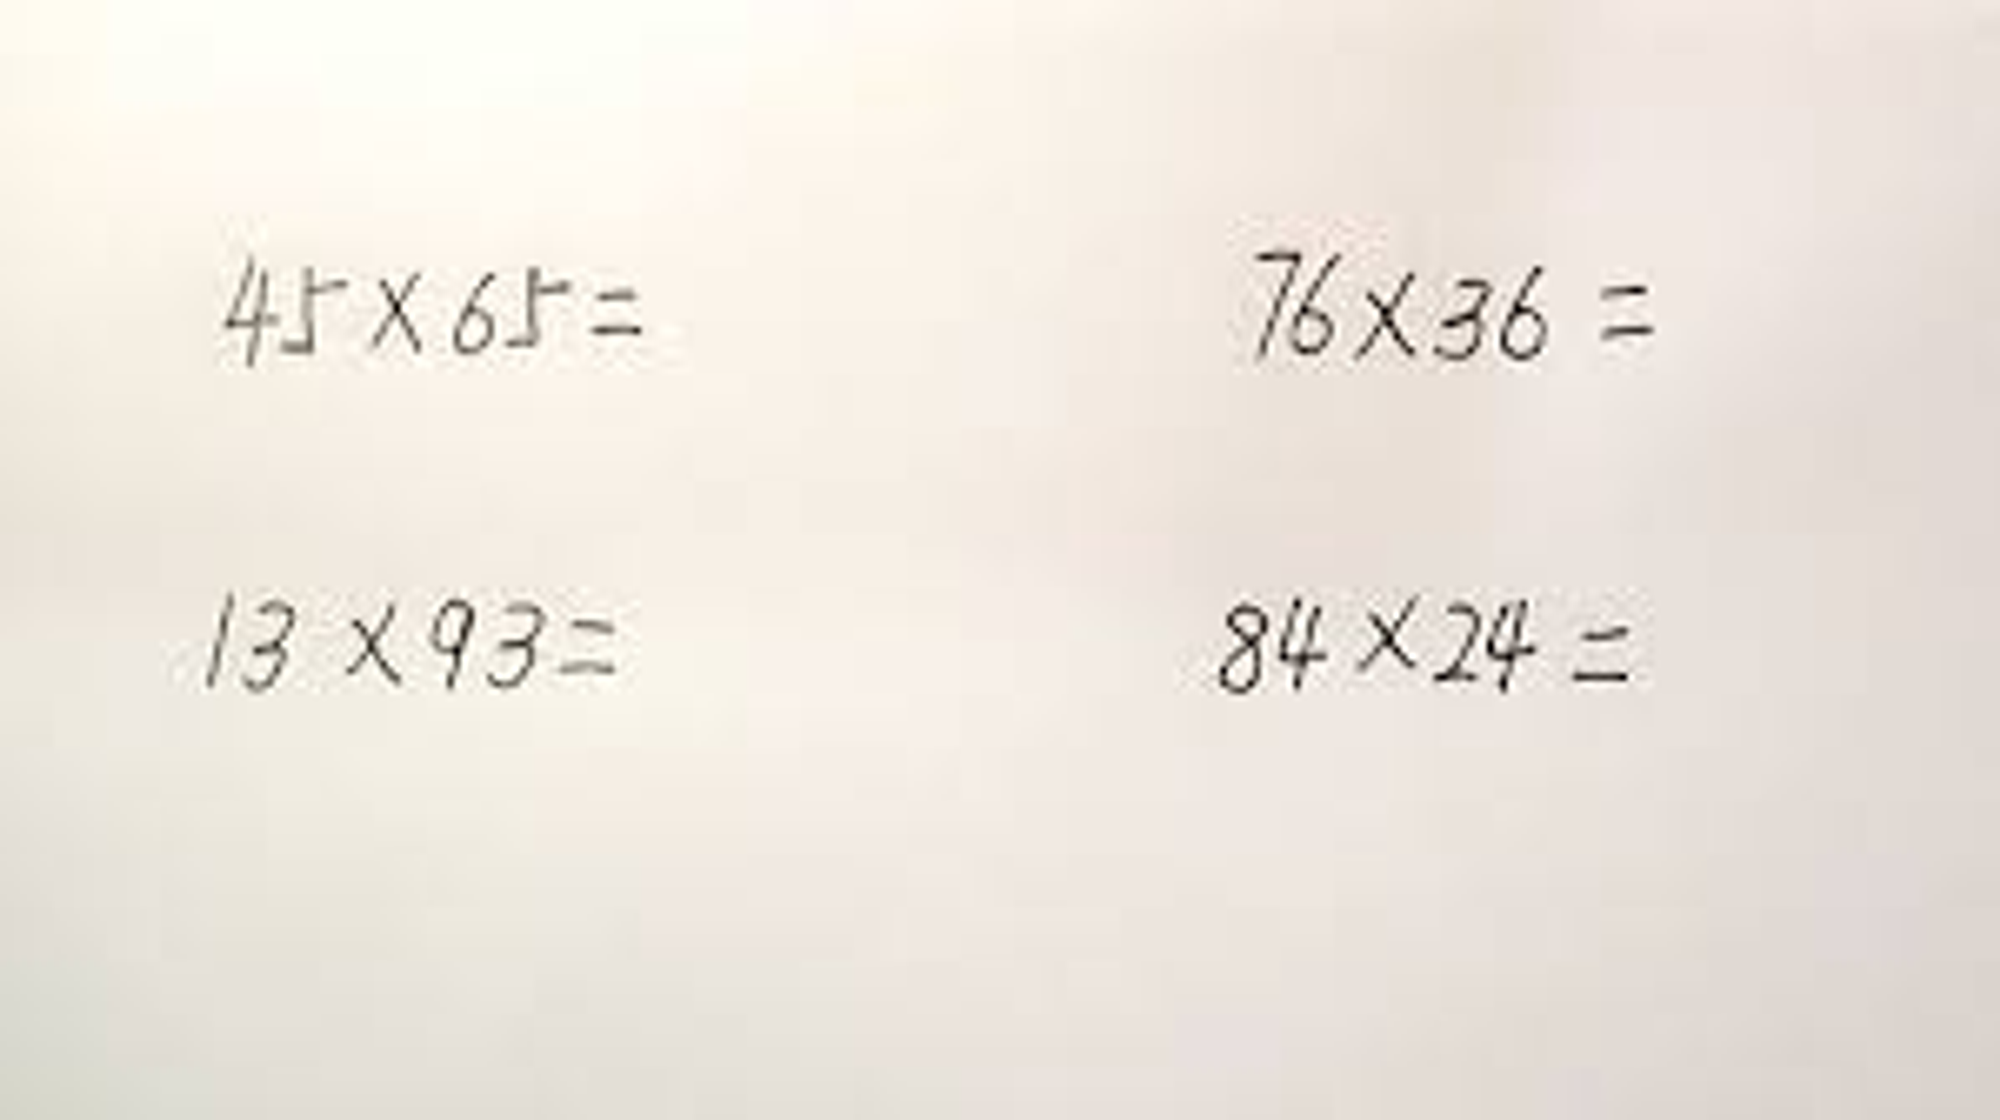 45×65= 76×36=
13×93= 84×24=